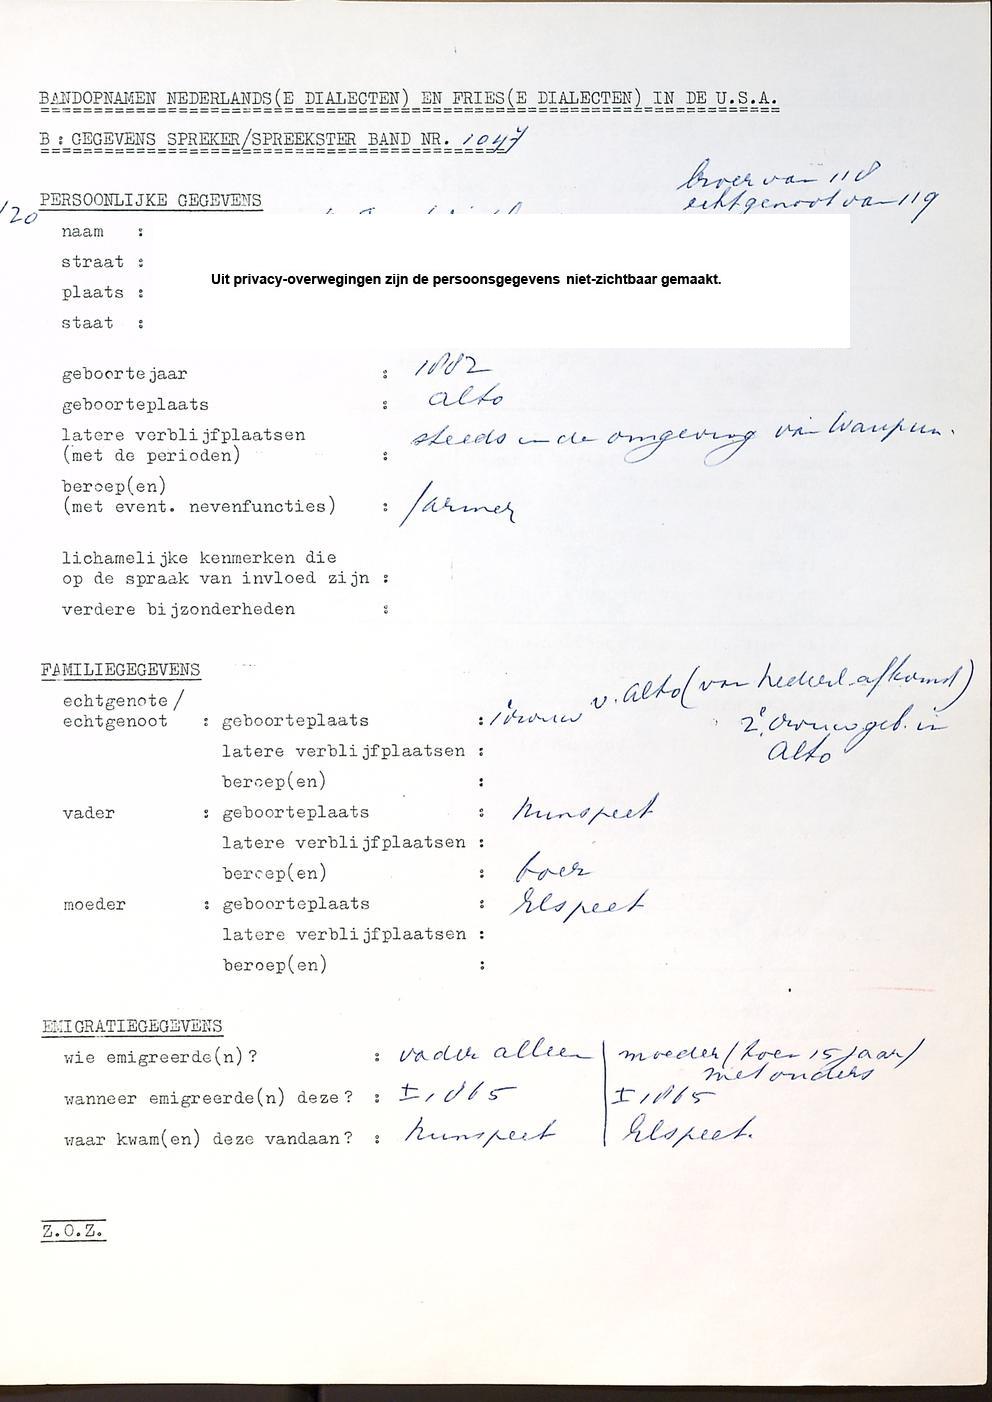 BANDOPNAMEN NEDERLANDS(E DIALECTEN) EN FRIES(E DIALECTEN) IN DE U.S.A.
B: GEGEVENS SPREKER/SPREEKSTER BAND NR. 1047
broer van 118
120 PERSOONLIJKE GEGEVENS echtgenoot van 119
naam :
straat :
Uit privacy-overwegingen zijn de persoonsgegevens niet-zichtbaar gemaakt.
plaats :
staat :
geboortejaar : 1882
geboorteplaats : Alto
latere verblijfplaatsen steeds in de omgeving van Waupun.
(met de perioden) :
beroep(en)
(met event. nevenfuncties) : farmer
lichamelijke kenmerken die
op de spraak van invloed zijn :
verdere bijzonderheden :
FAMILIEGEGEVENS
echtgenote/
echtgenoot : geboorteplaats : 1e vrouw v. Alto (van Nederl. afkomst)
2e vrouw geb. in
Alto
latere verblijfplaatsen :
beroep(en) :
vader : geboorteplaats : Nunspeet
latere verblijfplaatsen :
beroep(en) : boer
moeder : geboorteplaats : Elspeet
latere verblijfplaatsen :
beroep(en) :
EMIGRATIEGEGEVENS
wie emigreerde(n)? : vader alleen | moeder (toen 15 jaar)
met ouders
wanneer emigreerde(n) deze? : ± 1865 ± 1865
waar kwam(en) deze vandaan? : Nunspeet Elspeet.
Z.O.Z.